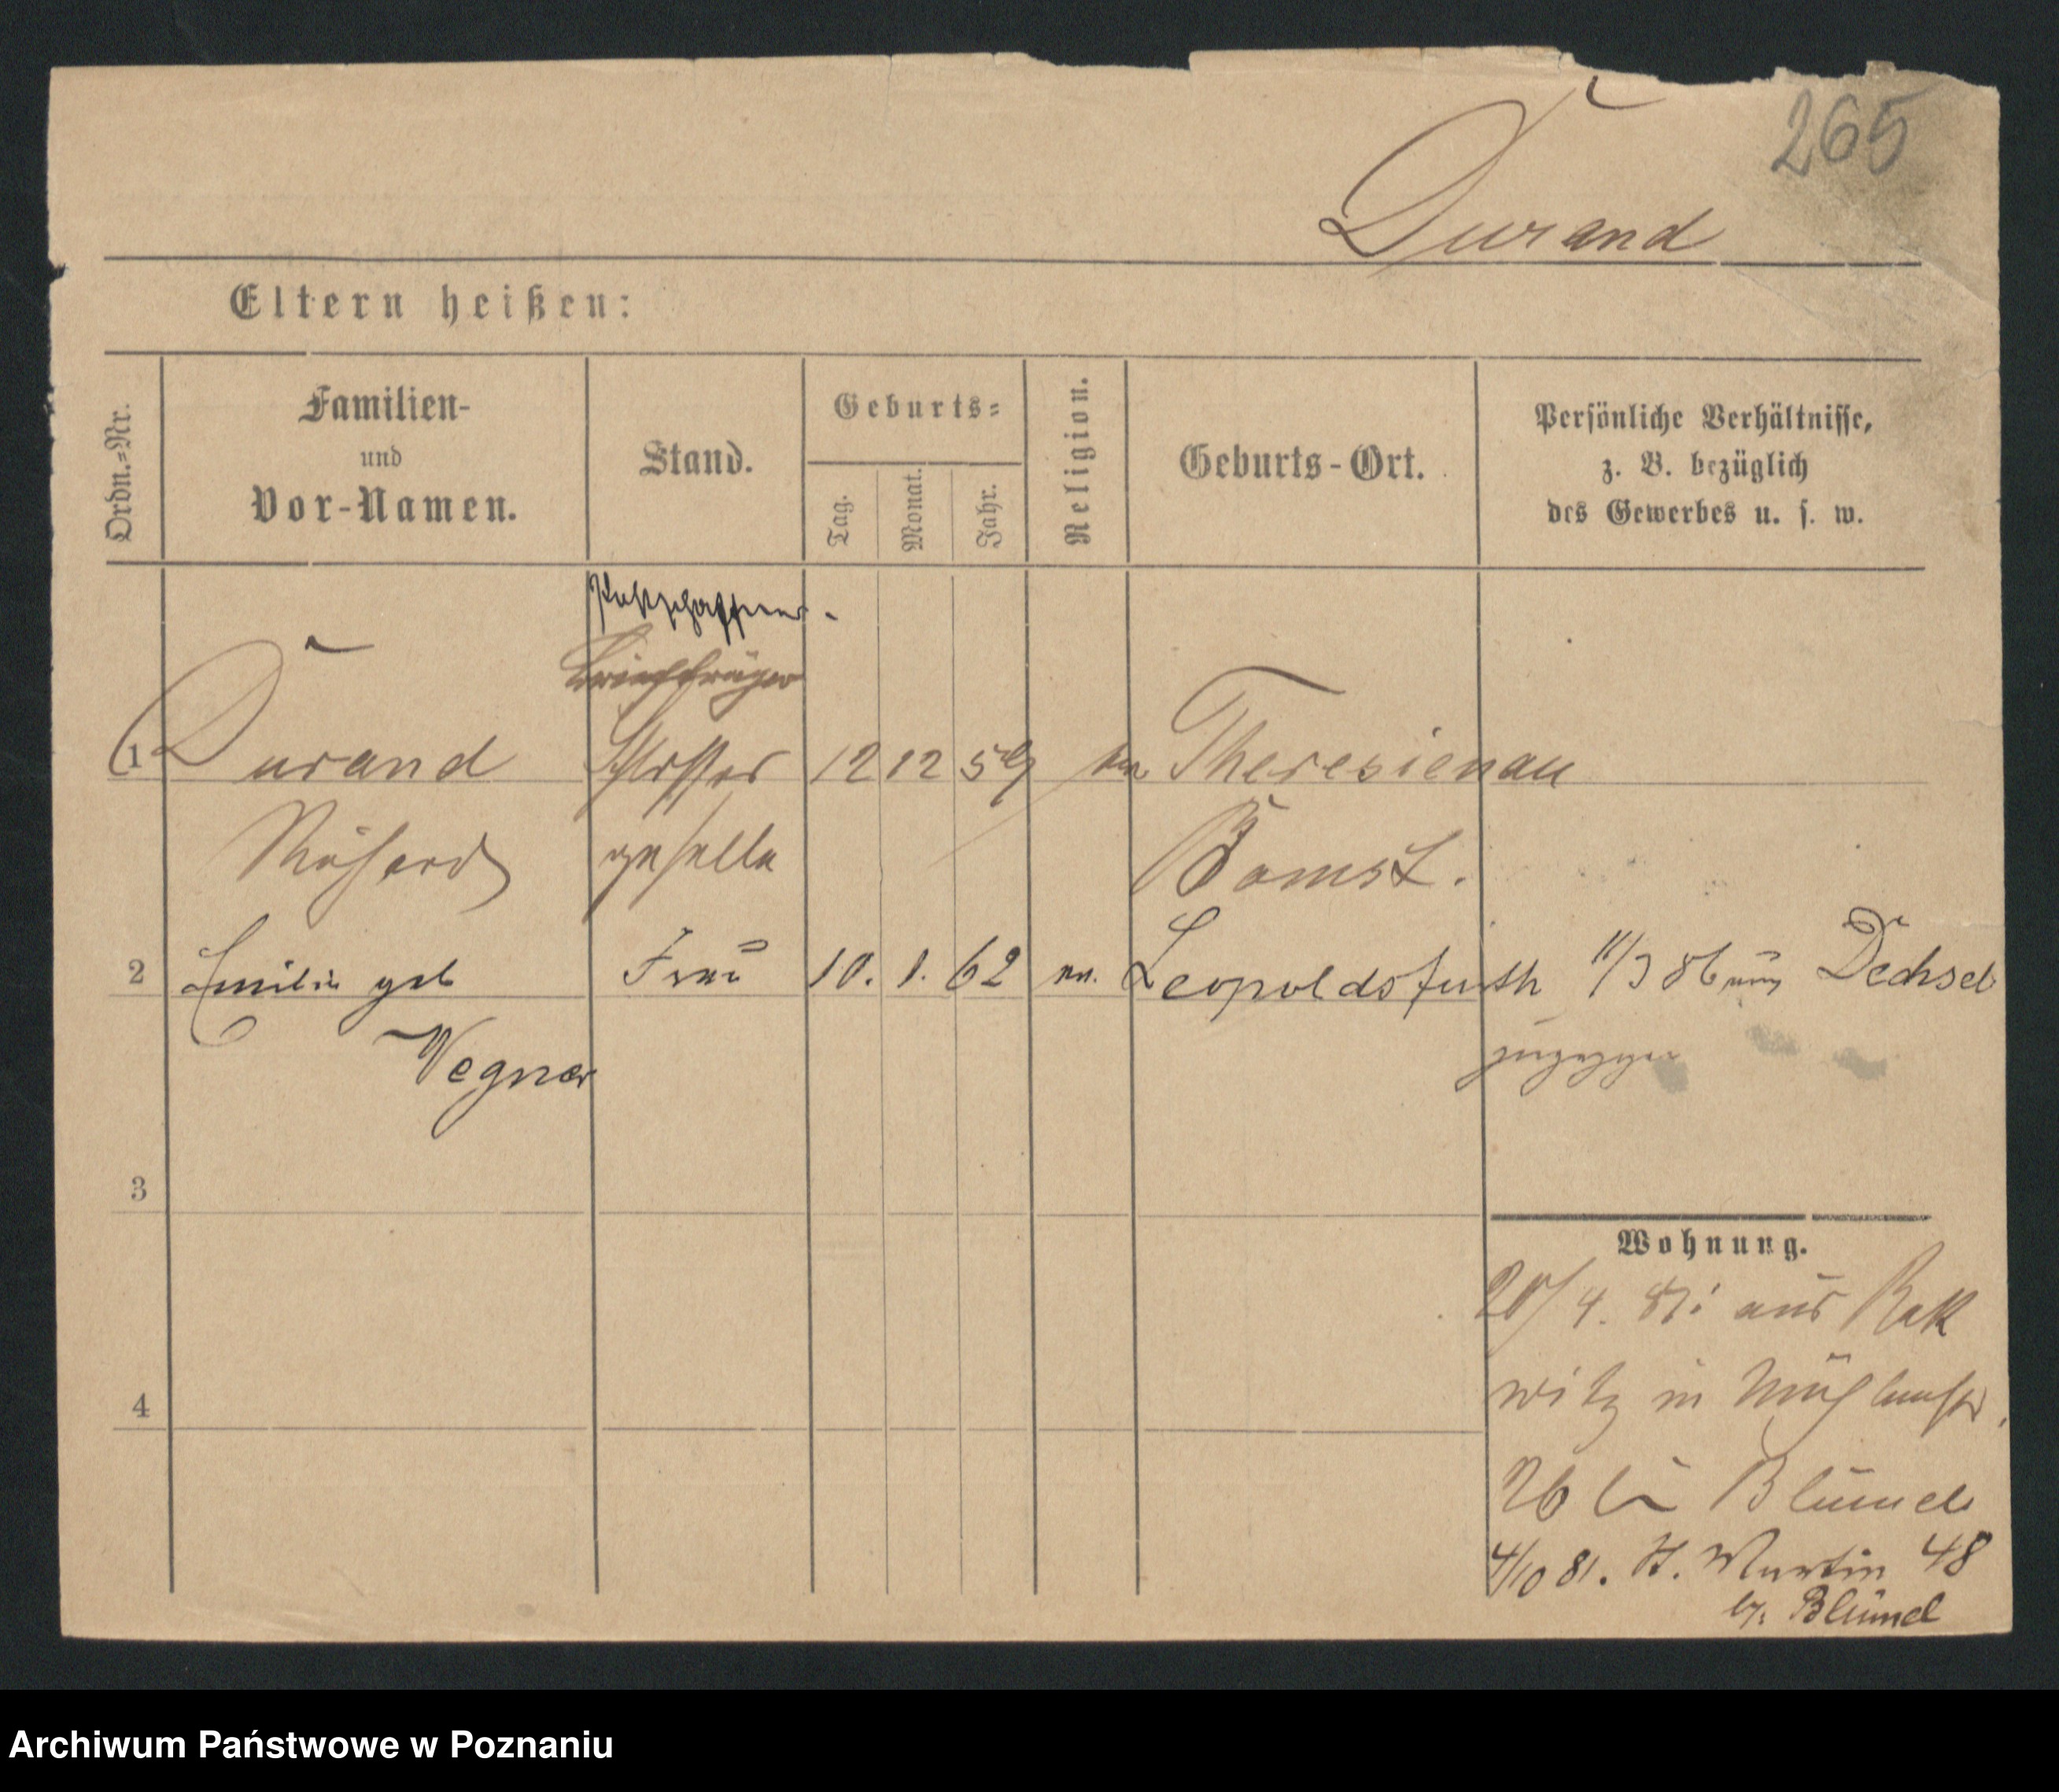 265
Durand
Eltern heißen:
Ordn.=Nr.
Familien-
und
Vor-Namen.
Stand.
Geburts=
Tag.
Monat.
Jahr.
Religion.
Geburts-Ort.
Persönliche Verhältnisse,
z. B. bezüglich
des Gewerbes u. s. w.
Postschaffner.
Briefträger
1 Durand Schlosser 12 12 59 ev Theresienau
Richard geselle Bomst.
2 Emilie geb Frau 10. 1. 62 ev. Leopoldsfurth 11/3 86 aus Dechsel
Wegner zugezogen
3
Wohnung.
20/4. 81: aus Rak
witz in Mühlenstr.
4
26 bei Blümel
4/10 81. St. Martin 48
b. Blümel
Archiwum Państwowe w Poznaniu